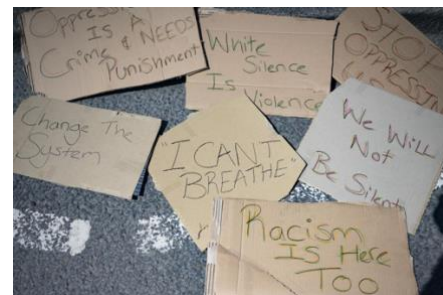 Oppression
IS A
Crime & NEEDS
Punishment
White
Silence
Is
Violence
STOP
OPPRESSING
Change The
System
"I CAN'T
BREATHE"
We Will
Not
Be Silent
Racism
Is Here
Too